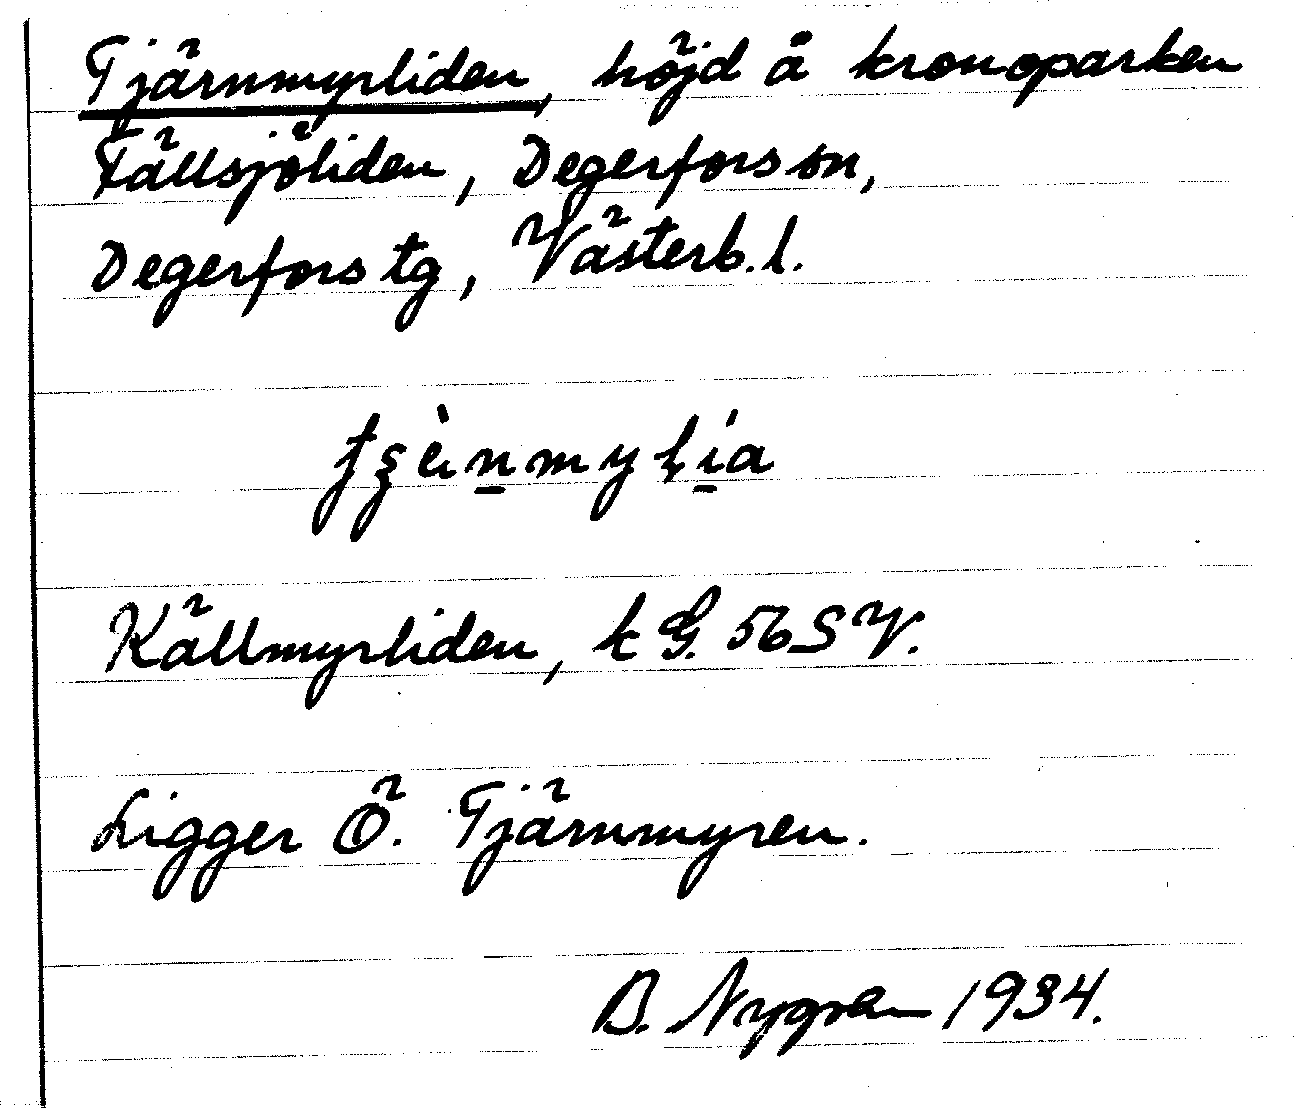 Tjärnmyrliden, höjd å kronoparken
Fällsjöliden, Degerfors sn,
Degerfors tg, Västerb. l.
Källmyrliden, k G. 56 SV.
Ligger Ö. Tjärnmyren.
B. Nygren 1934.